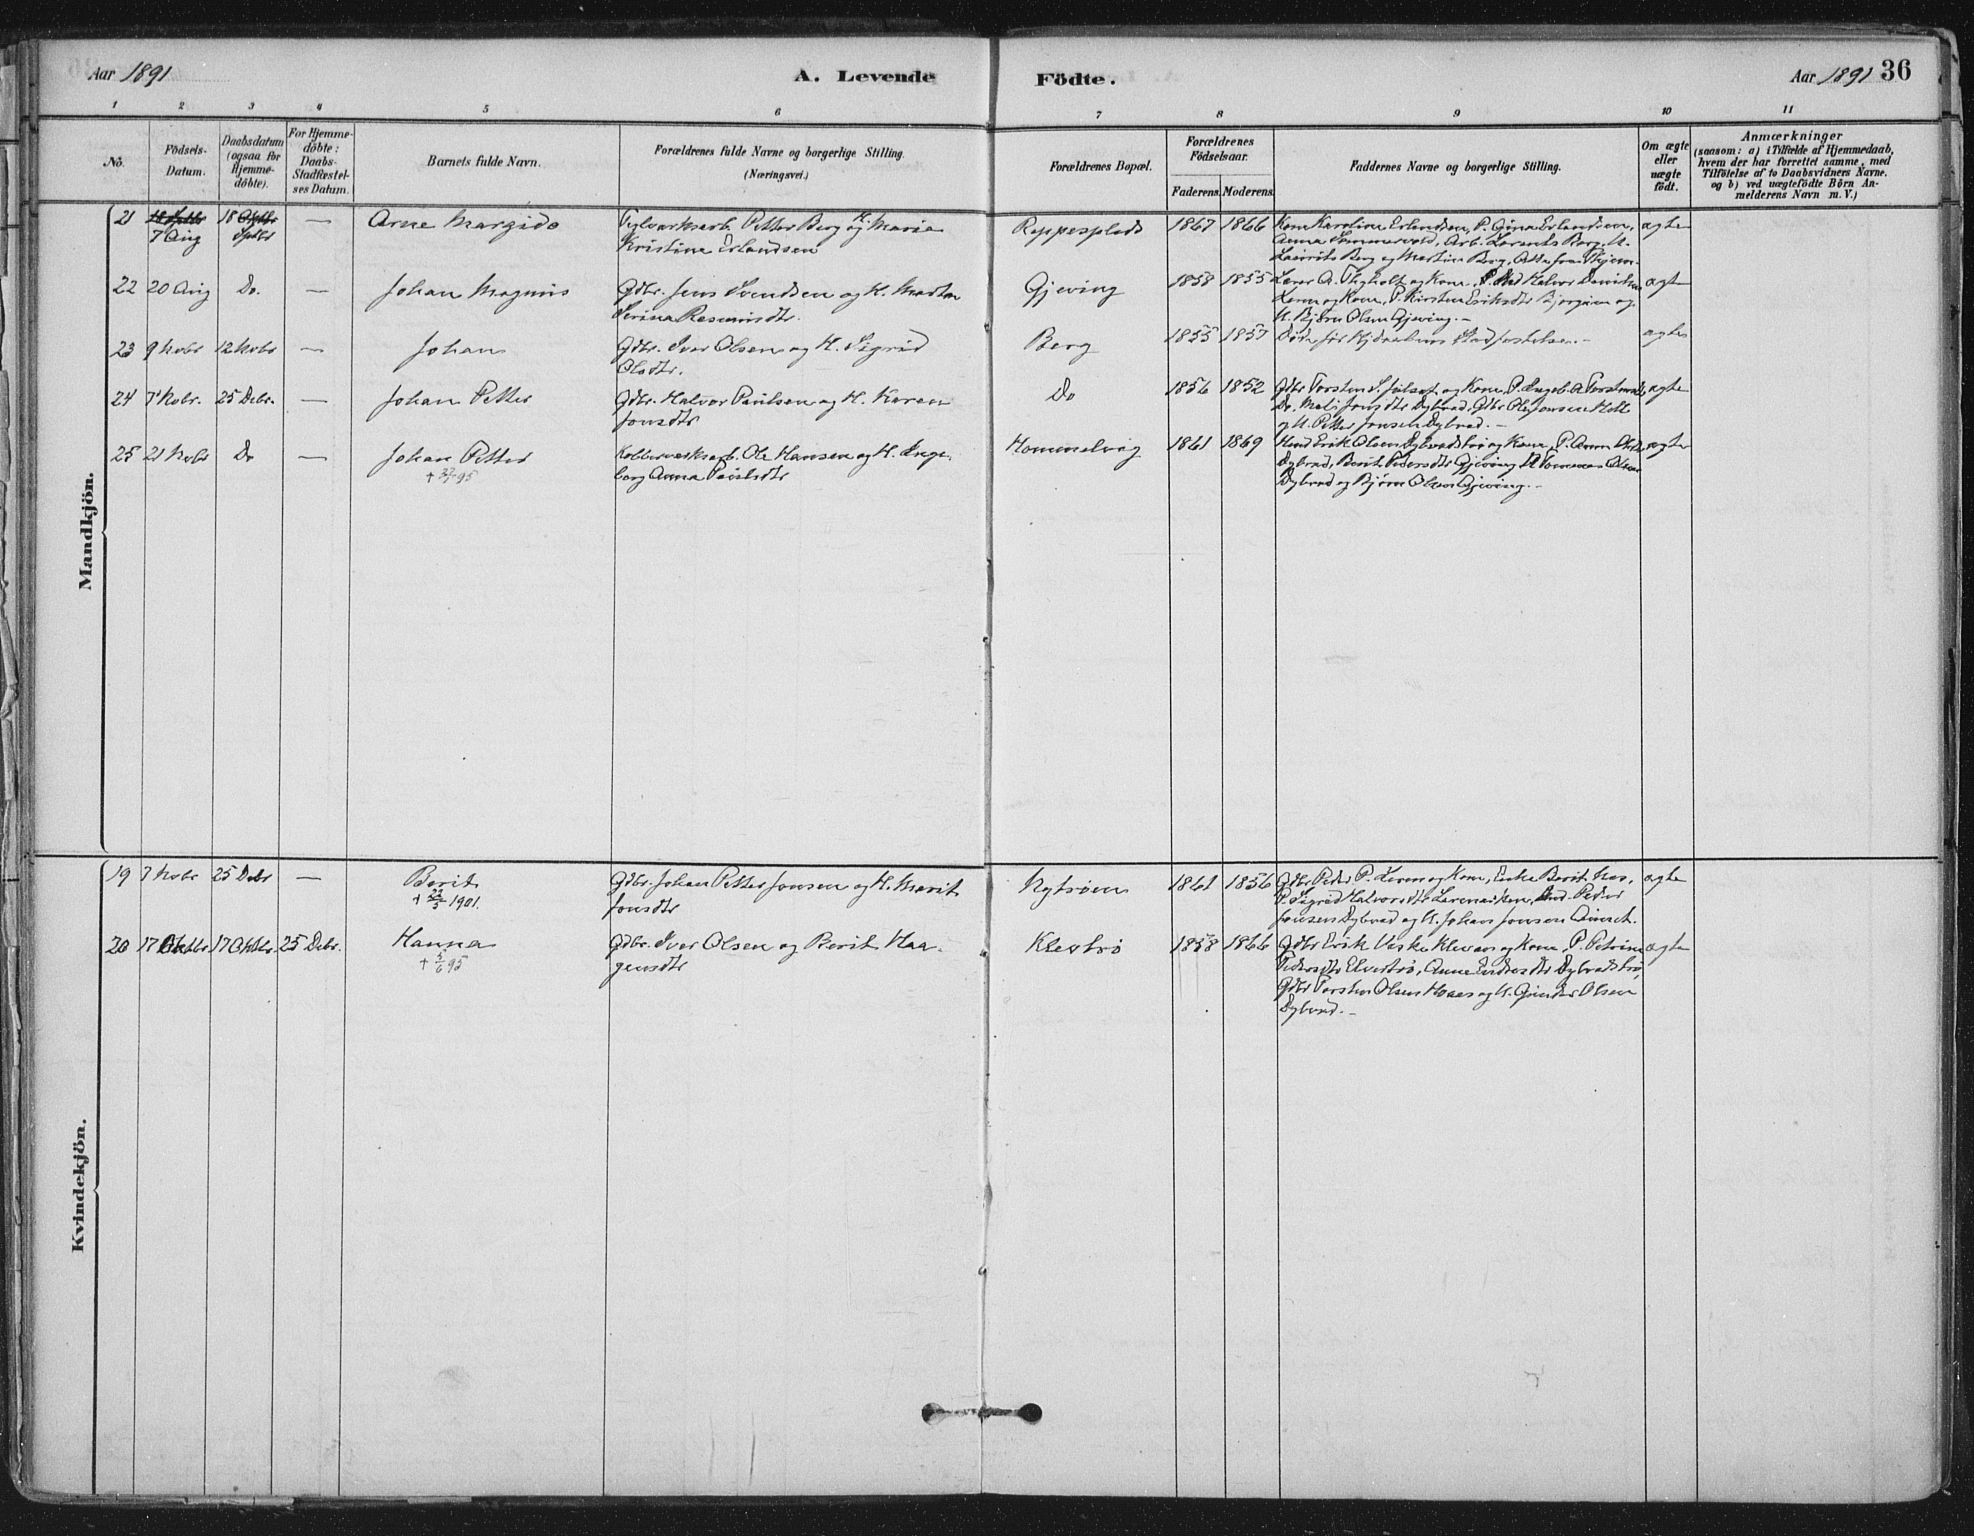 Aar 1891
A. Levende
Födte.
Aar 1891 36
1 2 3 4 5 6 7 8 9 10 11
Nö.
Födsels-Datum.
Daabsdatum (ogsaa for Hjemme-döbte).
For Hjemme-döbte: Daabs-Stadfæstel-ses Datum.
Barnets fulde Navn.
Forældrenes fulde Navne og borgerlige Stilling. (Næringsvei.)
Forældrenes Bopæl.
Forældrenes Födselsaar.
Faderens. Moderens.
Faddernes Navne og borgerlige Stilling.
Om ægte eller uægte födt.
Anmærkninger
(saasom: a) i Tilfælde af Hjemmedaab,
hvem der har forrettet samme, med
Tilföielse af to Daabsvidners Navne.
og b) ved uægtefödte Börn An-
melderens Navn m. V.)
Mandkjön.
21 7 Aug 18 Septbr — Arne Margido Teglværksarb. Petter Berg og H. Maria
Kristine Erlandsen
Reppesplads 1867 1866 Kone Karoline Erlandsen, P. Gina Erlandsen, ægte
Arb. Lorents Berg, U.
Lauritz Berg og Martin Berg,
22 20 Aug Do. — Johan Magnus Gdbr. Jens Svendsen og H. Marta
Serina Rasmusdtr.
Gjeving 1858 1855 Lærer A. og Kone, Halvor ægte
og Kone, P. Kirsten Eriksdtr og
U. Bjørn Olsen Gjeving. —
23 9 Novbr 12 Novbr — Johan Gdbr. Iver Olsen og H. Sigrid
Olsdtr.
Berg 1855 1857 Døde før Stadfæstelsen. — ægte
24 7 Novbr. 25 Debr. — Johan Petter Gdbr. Halvor Paulsen og H. Karen
Jonsdtr
Do 1856 1852 Gdbr Torsten og Kone, P. Ingeb. A. ægte
Do. Mali Jonsdtr Dybvad, Gdbr Ole Jonsen
og U. Petter Jonsen Dybvad. —
25 21 Novbr Do — Johan Petter Kobberværksarb. Ole Hansen og H. Inge-
borg Anna Paulsdtr
Hommelvig 1861 1869 Erik Olsen og Kone, P. Anna ægte
Dybvad, Berit Pedersdtr Gjeving, U. Olsen
Dybvad og Bjørn Olsen Gjeving. —
Kvindekjön.
19 7 Novbr 25 Debr — Berit Gdbr. Johan Petter Jonsen og H. Marit
† 22/5 1901. Jonsdtr
Nytrøen 1861 1856 Gdbr Peder P. og Kone, Enke Berit ægte
P. Sigrid Halvorsdtr Peder
Jonsen Dybvad og U. Johan Jonsen
20 17 Oktbr 17 Oktbr. 25 Debr. Hanna Gdbr. Iver Olsen og Berit Haa-
† 5/6 95 gensdtr
Klestrø 1858 1866 Gdbr Erik og Kone, P. Petrine ægte
Pedersdtr Elvertrø, Anne
Gdbr Torsten Olsen og U. Olsen
Dybvad. —